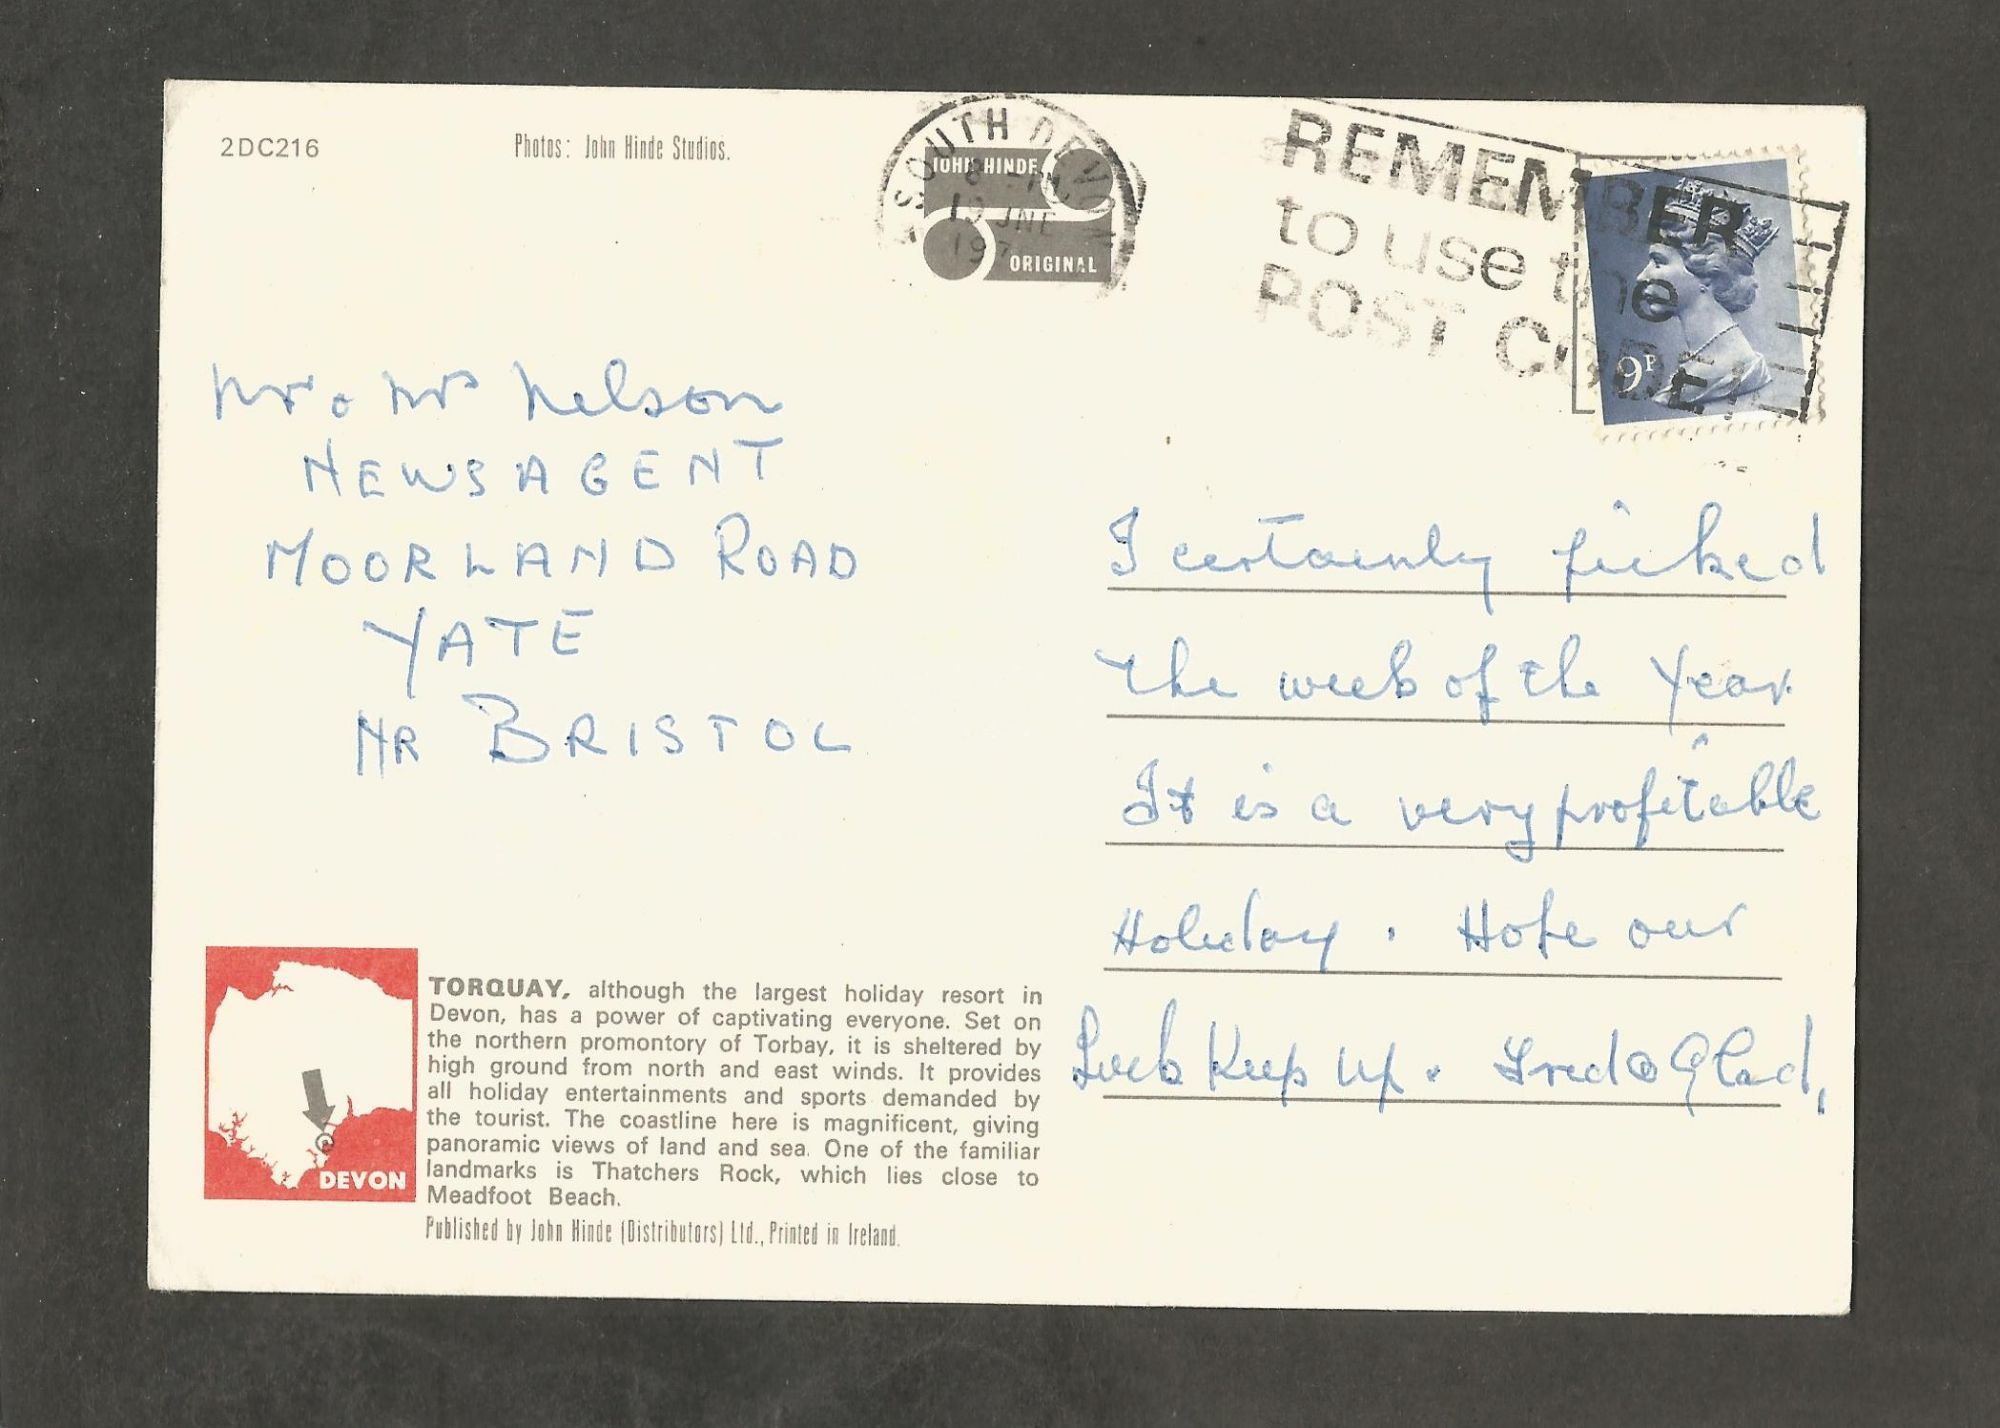 2DC216
Photos: John Hinde Studios.
SOUTH DEVON
19 JNE
197
JOHN HINDE
ORIGINAL
REMEMBER
to use the
POST CODE
9P
Mr & Mrs Nelson
NEWSAGENT
MOORLAND ROAD
YATE
NR BRISTOL
I certainly picked
the week of the Year
It is a very profitable
Holiday . Hope our
Luck Keep up . Fred & Glad,
TORQUAY, although the largest holiday resort in
Devon, has a power of captivating everyone. Set on
the northern promontory of Torbay, it is sheltered by
high ground from north and east winds. It provides
all holiday entertainments and sports demanded by
the tourist. The coastline here is magnificent, giving
panoramic views of land and sea. One of the familiar
landmarks is Thatchers Rock, which lies close to
Meadfoot Beach.
DEVON
Published by John Hinde (Distributors) Ltd., Printed in Ireland.